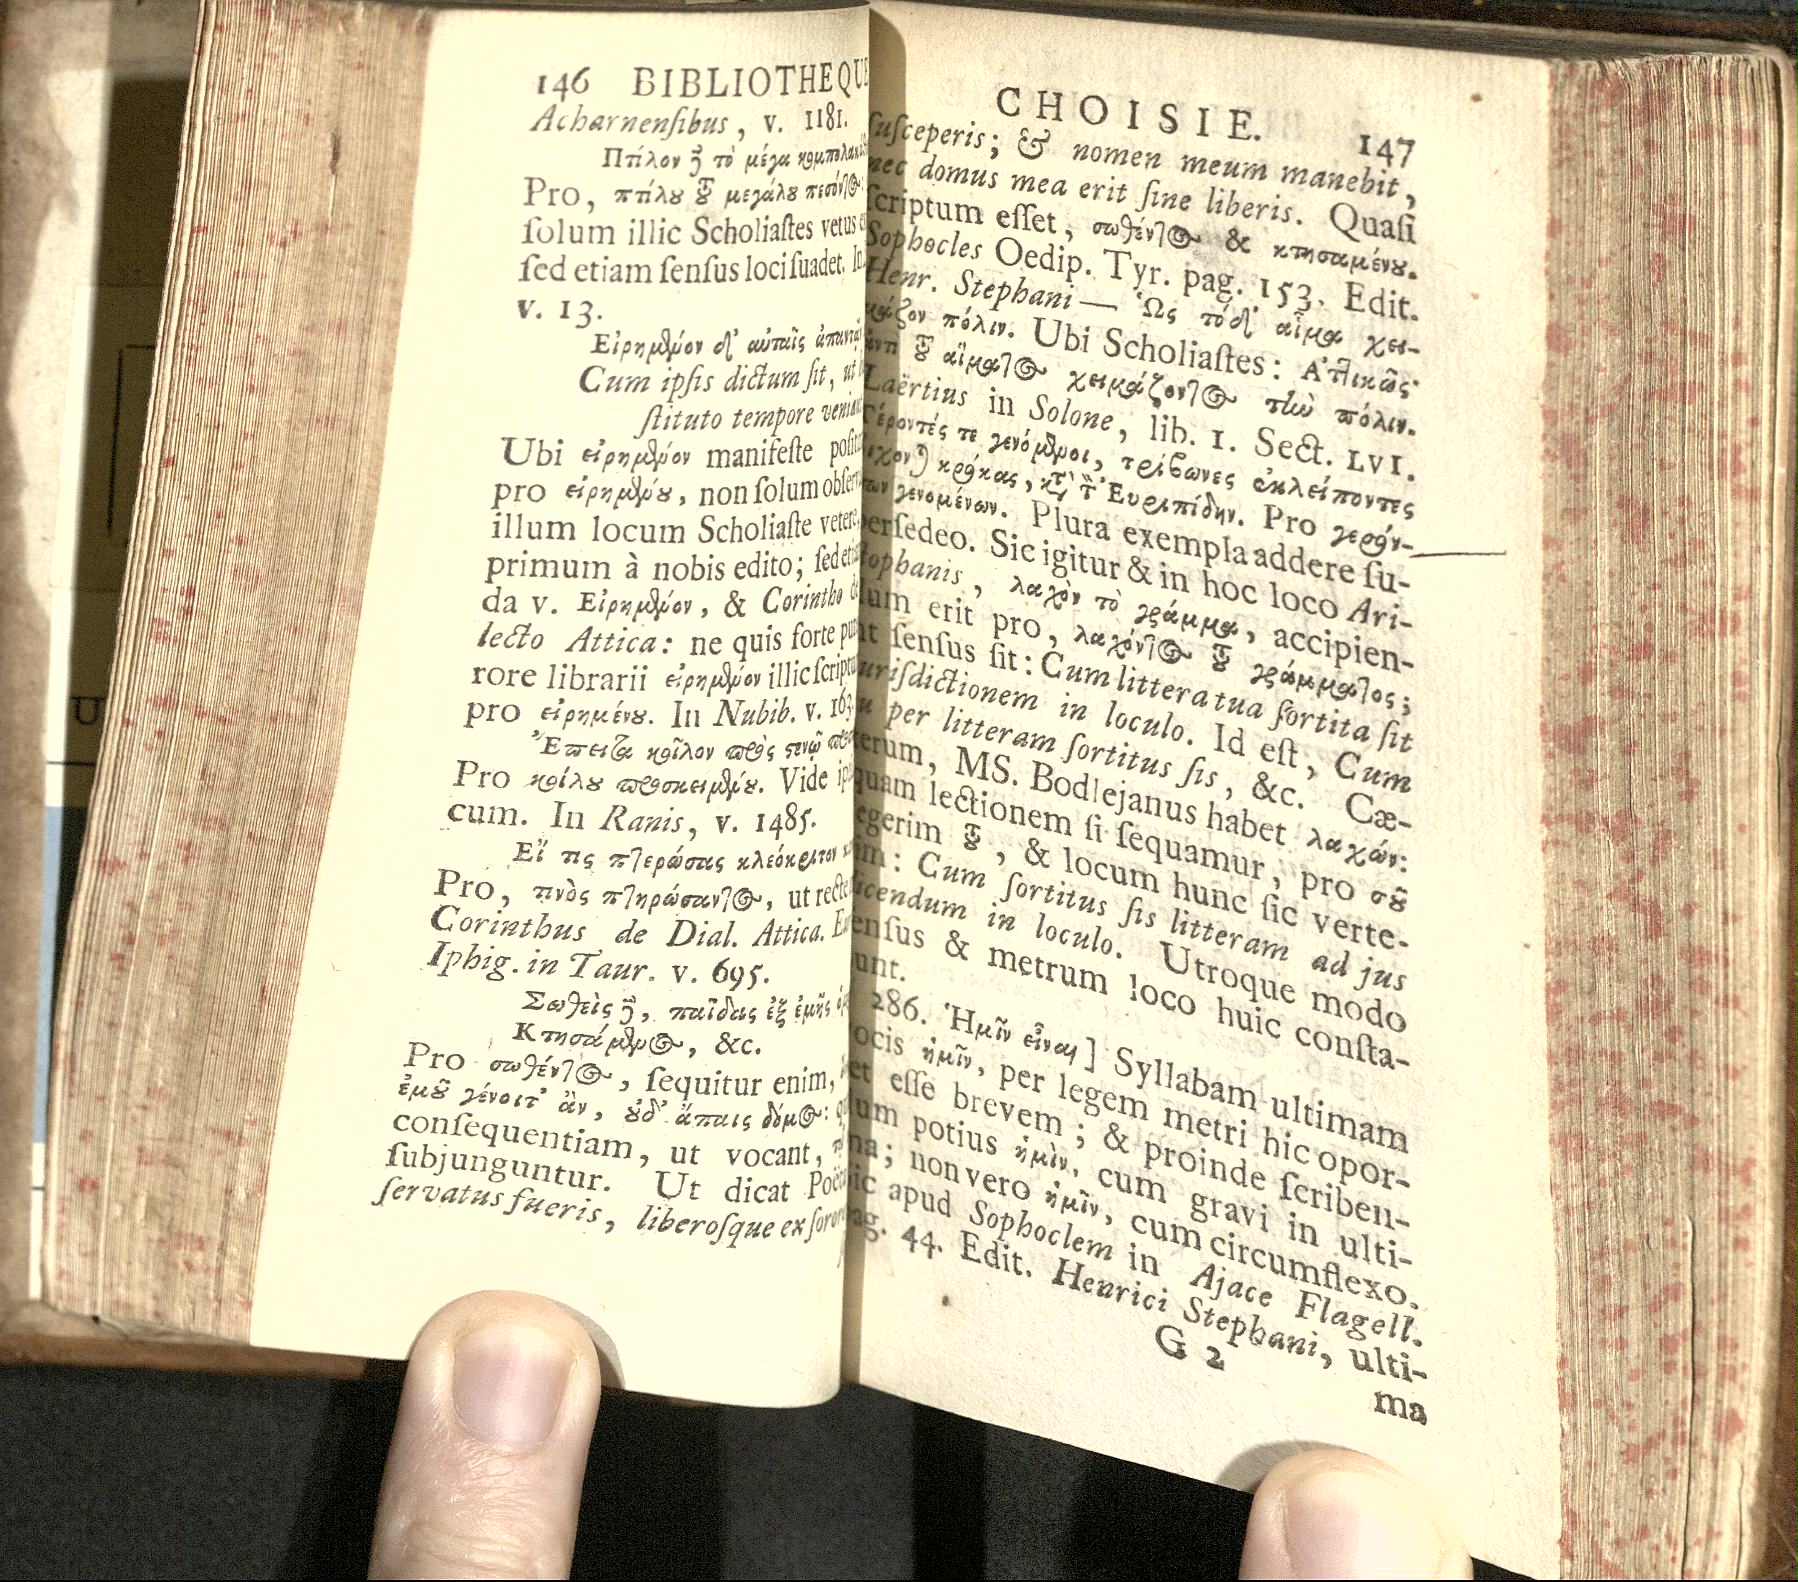 146 BIBLIOTHEQUE
Acharnensibus, v. 1181.
Πτίλον δὲ τὸ μέγα
Pro, πτίλου τοῦ μεγάλου πεσόντος
solum illic Scholiastes vetus
sed etiam sensus loci suadet. In
v. 13.
Εἰρημένον δ' αὐταῖς ἀπαντᾷν
Cum ipsis dictum sit, ut
stituto tempore veniant
Ubi εἰρημένον manifeste
pro εἰρημένου, non solum
illum locum Scholiaste vetere,
primum à nobis edito; sed
da v. Εἰρημένον, & Corintho
lecto Attica: ne quis forte
rore librarii εἰρημένον illic
pro εἰρημένου. In Nubib. v. 163
Ἔπειτα κοῖλον πρὸς στενῷ
Pro κοίλου προσκειμένου. Vide
cum. In Ranis, v. 1485.
Εἴ τις πτερώσας κλεόκριτον
Pro, τινὸς πτηρώσαντος, ut recte
Corinthus de Dial. Attica.
Iphig. in Taur. v. 695.
Σωθεὶς δὲ, παῖδας ἐξ ἐμῆς
Κτησάμενος, &c.
Pro σωθέντος, sequitur enim,
ἐμοῦ γένοιτ' ἂν, οὐδ' ἄπαις δόμος:
consequentiam, ut vocant,
subjunguntur. Ut dicat
servatus fueris, liberosque ex
CHOISIE. 147
susceperis; & nomen meum manebit,
nec domus mea erit sine liberis. Quasi
scriptum esset, σωθέντος & κτησαμένου.
Sophocles Oedip. Tyr. pag. 153. Edit.
Henr. Stephani — Ὡς τόδ' αἷμα χει-
μάζον πόλιν. Ubi Scholiastes: Ἀττικῶς·
ἀντὶ τοῦ αἵματος χειμάζοντος τὴν πόλιν.
Laërtius in Solone, lib. 1. Sect. LVI.
Γέροντές τε γενόμενοι, τρίβωνες ἐκλείποντες
κρόκας, κατὰ τὸν Εὐριπίδην. Pro γερόν-
των γενομένων. Plura exempla addere su-
persedeo. Sic igitur & in hoc loco Ari-
stophanis, λαχὸν τὸ γράμμα, accipien-
dum erit pro, λαχόντος τοῦ γράμματος;
ut sensus sit: Cum littera tua sortita sit
jurisdictionem in loculo. Id est, Cum
tu per litteram sortitus sis, &c. Cæ-
terum, MS. Bodlejanus habet λαχών:
quam lectionem si sequamur, pro σοῦ
legerim τοῦ, & locum hunc sic verte-
rim: Cum sortitus sis litteram ad jus
dicendum in loculo. Utroque modo
sensus & metrum loco huic consta-
bunt.
286. Ἡμῖν εἶναι] Syllabam ultimam
vocis ἡμῖν, per legem metri hic opor-
tet esse brevem; & proinde scriben-
dum potius ἡμὶν, cum gravi in ulti-
ma; non vero ἡμῖν, cum circumflexo.
Sic apud Sophoclem in Ajace Flagell.
pag. 44. Edit. Henrici Stephani, ulti-
G 2
ma